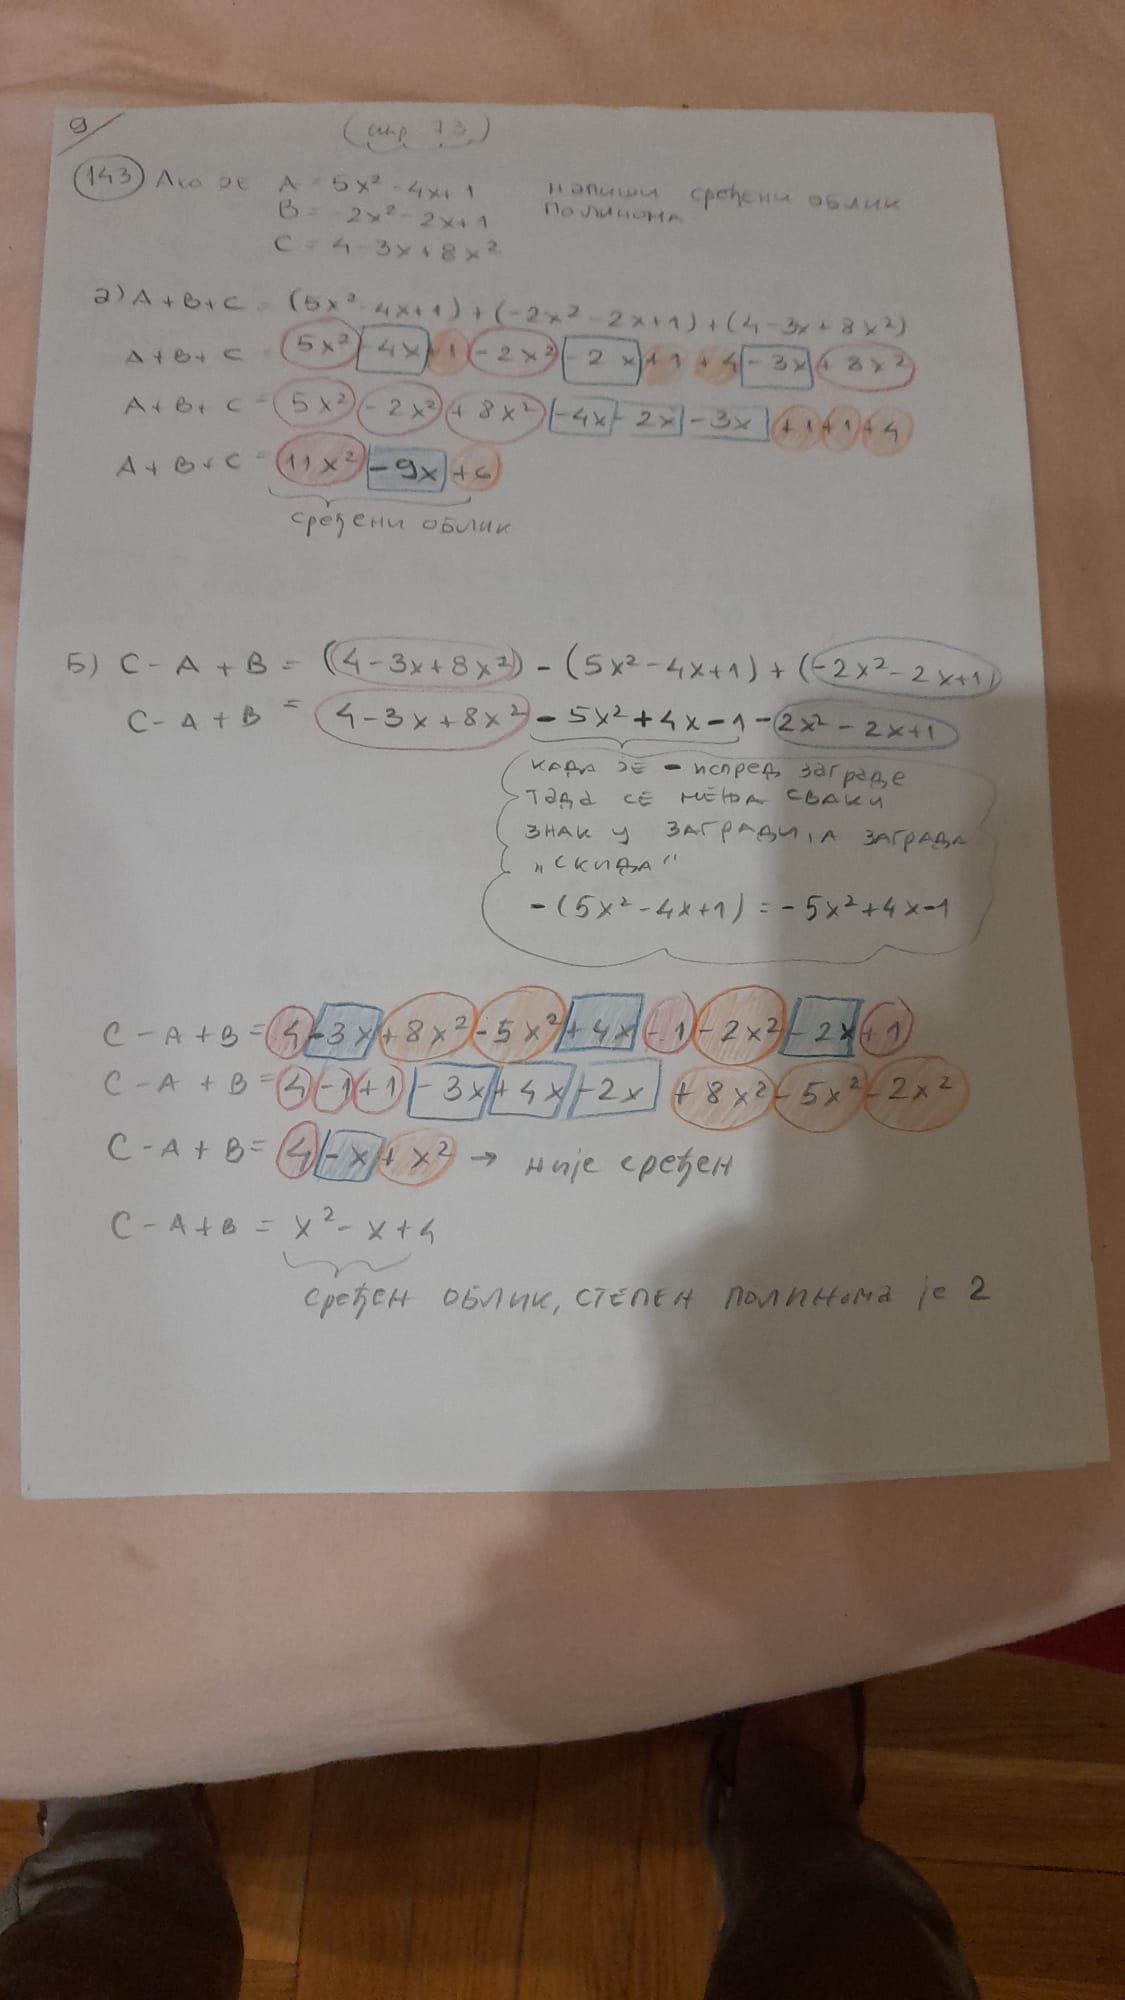 9/
(стр 73)
143 Ако је A = 5x² - 4x + 1 напиши сређени облик
B = -2x² - 2x + 1 полинома
C = 4 - 3x + 8x²
а) A + B + C = (5x² - 4x + 1) + (-2x² - 2x + 1) + (4 - 3x + 8x²)
A + B + C = 5x² - 4x + 1 - 2x² - 2x + 1 + 4 - 3x + 8x²
A + B + C = 5x² - 2x² + 8x² - 4x - 2x - 3x + 1 + 1 + 4
A + B + C = 11x² - 9x + 6
сређени облик
Б) C - A + B = (4 - 3x + 8x²) - (5x² - 4x + 1) + (-2x² - 2x + 1)
C - A + B = 4 - 3x + 8x² - 5x² + 4x - 1 - 2x² - 2x + 1
када је - испред заграде
тада се мења сваки
знак у загради, а заграда
„скида"
- (5x² - 4x + 1) = - 5x² + 4x - 1
C - A + B = 4 - 3x + 8x² - 5x² + 4x - 1 - 2x² - 2x + 1
C - A + B = 4 - 1 + 1 - 3x + 4x - 2x + 8x² - 5x² - 2x²
C - A + B = 4 - x + x² → није сређен
C - A + B = x² - x + 4
сређен облик, степен полинома је 2